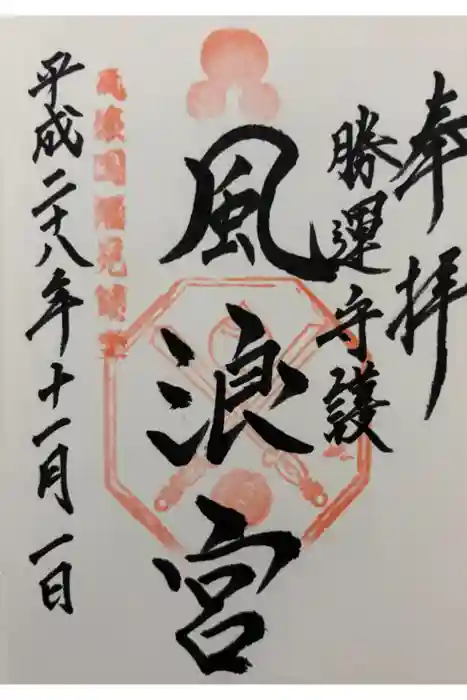 奉拝
勝運守護
風浪宮
平成二十八年十一月一日